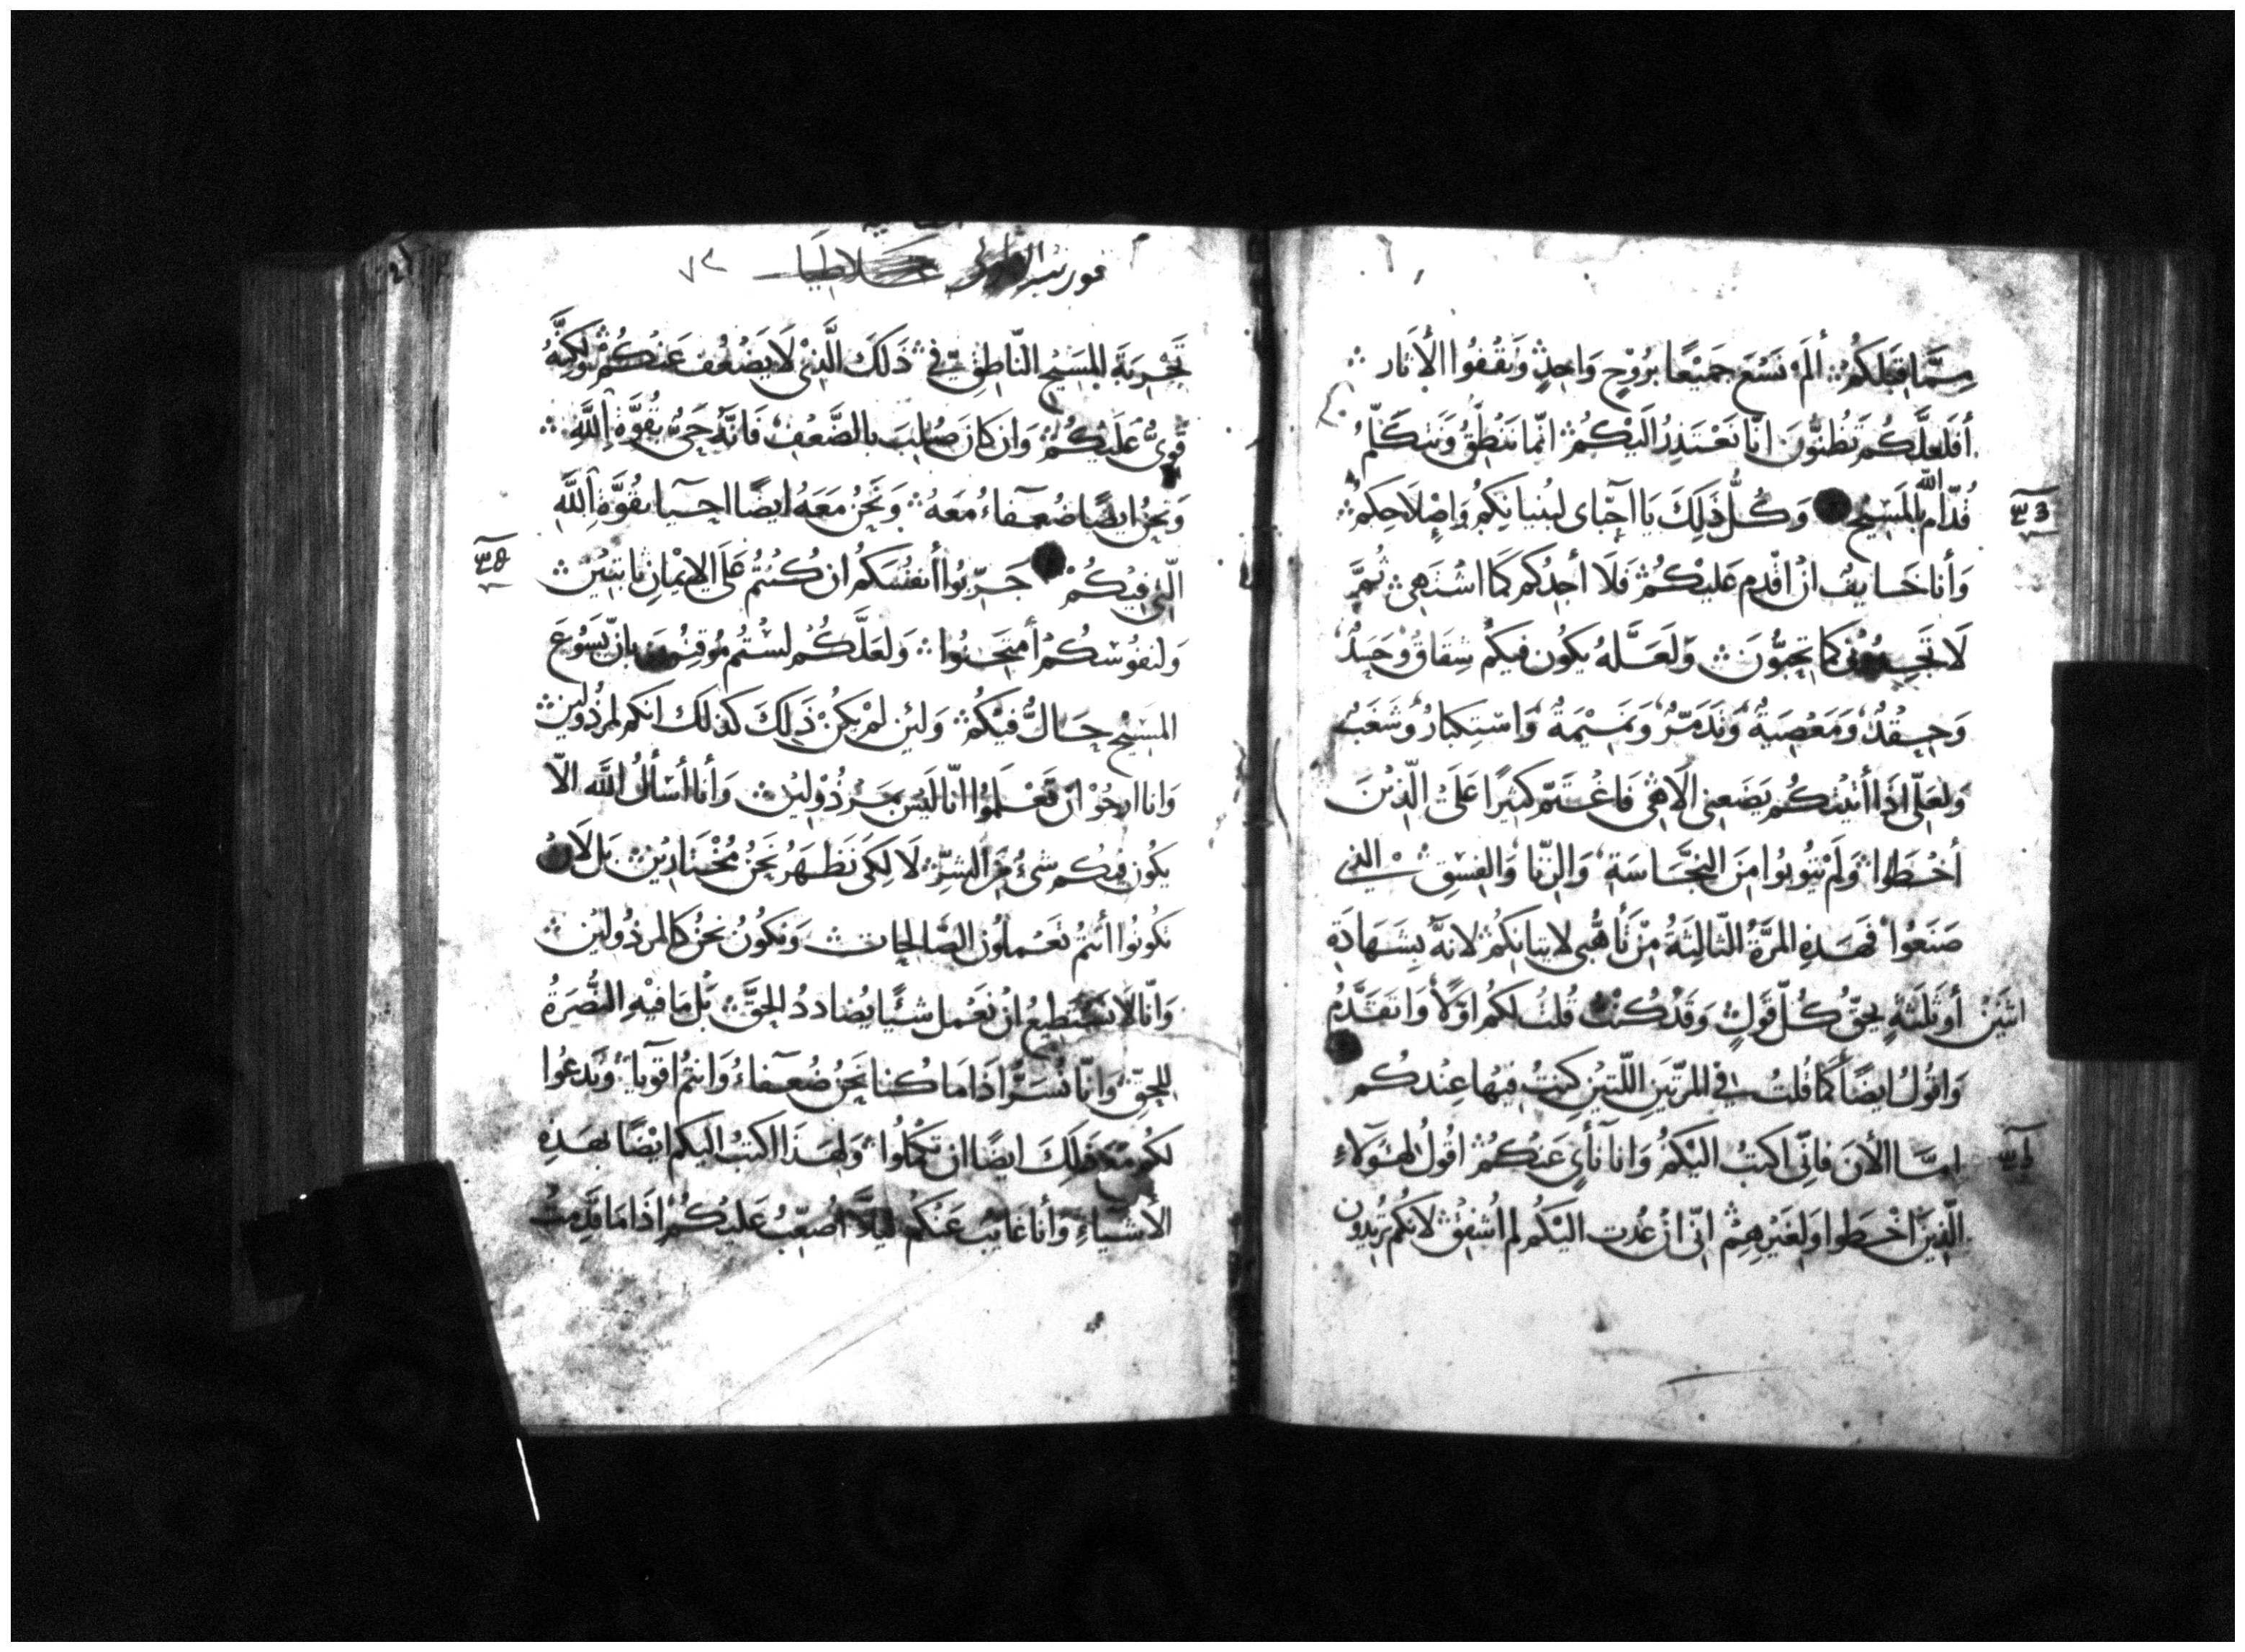 مِمَّا قِبَلَكُمْ ألَمْ نَسْعَ جَمِيْعًا بِرُوْحٍ وَاحِدٍ وَنَقْفُوا الأثار
أفَلَعَلَّكُمْ تَظُنُّونَ انَّا نَعْتَذِرُ الَيْكُمْ انّما نَنْطِقُ وَنتكَلّمُ
قُدّام الله بالمَسِيْحِ وَكُلُّ ذَلِكَ يَا احِبّاى لبُنيانِكم وَإصْلاحِكم
وَأنا خَايف انْ اقْدم عَليْكُمْ فَلَا أجِدُكم كمَا اشْتَهي ثُمَّ
لَا تَجِدُوني كما تحِبُّونَ وَلَعَلَّهُ يكُون فيكُم شِقَاقٌ وَحَسَدٌ
وَحِقْدٌ وَمَعْصِيَةٌ وَتَدَمّرٌ وَنَمِيْمَةٌ وَاسْتِكبَارٌ وَشَغَبٌ
وَلعَلّى اذَا أتيْتكُم يَضَعني الَاهى فَاغْتَمّ كثِيْرًا عَلَى الّذيْنَ
أخْطَوا وَلَمْ يَتُوبُوا مِنَ النجَاسَةِ وَالزِنَا وَالفِسْقِ الذي
صَنَعُوا فهَذِهِ المرّةُ الثَالِثَةُ مِنْ تَأهُّبى لاتيَانِكُمْ لانهُ بِشَهَادَةِ
اثنَيْنِ أوثَلثَةٍ يحِقّ كُلّ قَوْلٍ وَقَدْ كُنْتُ قُلتُ لَكُم اوَّلًا وَاتقَدَّمُ
وَاقُولُ ايضًا كمَا قلتُ في المرّتَيْنِ اللّتيْنِ كنتُ فِيْهَا عِنْدكُم
امّا الأنَ فانّي اكتبُ اليْكمْ وَانا نَأىٍ عَنكُمْ اقُولُ لهَؤلَاءِ
الّذِيْنَ اخْطَوا وَلِغَيْرِهِمْ انّي انْ عُدت اليْكُم لم اُشْفِقْ لأنكُم تريْدُون
قورنتيه غلاطيا
تَجْربَةَ المَسِيْحِ النّاطِقِ فيّ ذَلكَ الَّذي لَا يَضْعُف عَنكُمْ وَلكِنَّهُ
قَوِىٌّ عَلَيْكُمْ وَان كَانَ صُلِبَ بالضَّعْفِ فَانّهُ حَىٌّ بقُوَّةِ اللَّهِ
وَنَحْنُ ايضًا ضُعَفاءُ مَعَهُ وَنَحْنُ مَعَهُ ايضًا احيَا بقُوَّةِ اللَّهِ
الّتي فيكُمْ جَرّبُوا أنفُسَكُم ان كُنْتُم عَلَى الايْمَانِ ثَابتيْنَ
وَلنفُوسكُمْ أمتَحِنُوا وَلعَلَّكُم لسْتُم مُوقِنيْنَ بانّ يَسُوعَ
المسِيْح حَالٌّ فيْكُم وَلئِن لم يَكنْ ذَلِكَ كذلك انكم لمرذُولين
وَانا ارجُوْ انْ تَعْلَمُوا انّا ليْسَ بمَرذُوْليْنَ وَأنا أسْألُ اللَّه الّا
يكُون فيكُم شئٌ مِنَ الشرِّ لَا لِكَىْ نَظهَرَ نَحْنُ مُخْتارِيْنَ بَل لَانْ
تكُونُوا أنتُمْ تَعْملُونَ الصَّالحات وَنكُونُ نَحْنُ كالمرذُوليْن
وَانّا لَا نسْتَطِيعُ انْ نَعْمل شيْئًا يُضادد الحقَّ بَل مَا فيْهِ النُصْرَةُ
لِلحقّ وَانّا نُسَرُّ اذَا مَا كنا نَحْنُ ضُعَفاءُ وَانتُم اقوِيَاءُ وَنَدعُوا
لكُم مَعَ ذَلِكَ ايضًا ان تَكمُلُوا وَلهَذَا اكتبُ اليكم ايْضًا بهَذِهِ
الأشْيَاءِ وَأنا غايبٌ عَنكُم ليَلَّا اُصَعِّبُ عَليْكُمْ اذَا مَا قَدِمتُ